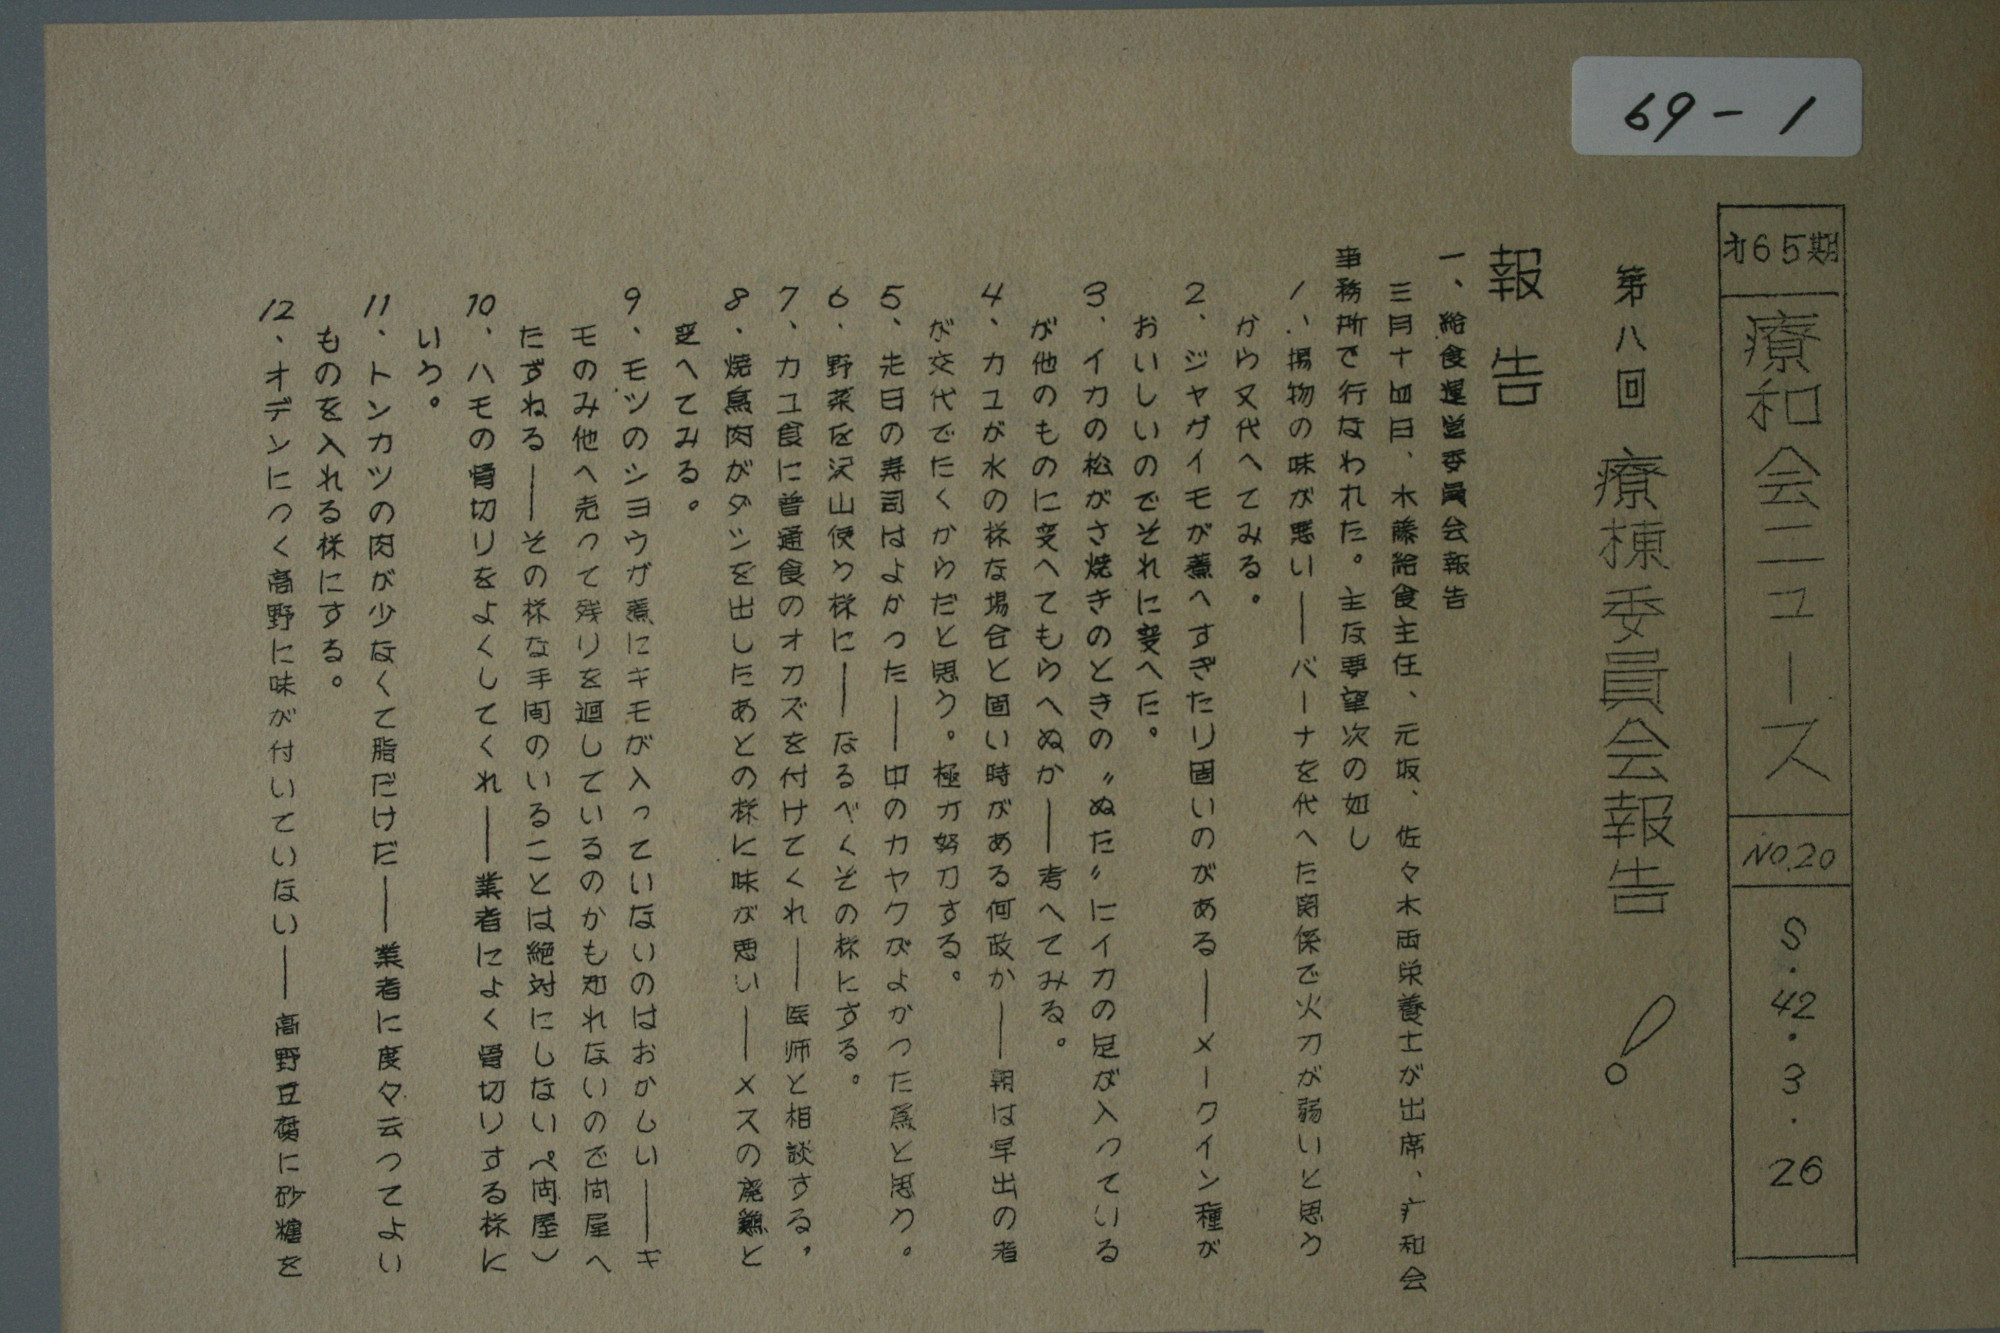 69-1
才65期 療和会ニュース NO.20 S・42・3・26
第八回 療棟委員会報告!
報告
一、給食運営委員会報告
三月十四日、水藤給食主任、元坂、佐々木両栄養士が出席、疒和会
事務所で行なわれた。主な要望次の如し
1、揚物の味が悪い――バーナを代へた関係で火力が弱いと思う
から又代へてみる。
2、ジャガイモが煮へすぎたり固いのがある――メークイン種が
おいしいのでそれに変へた。
3、イカの松がさ焼きのときの〝ぬた〟にイカの足が入っている
が他のものに変へてもらへぬか――考へてみる。
4、カユが水の様な場合と固い時がある何故か――朝は早出の者
が交代でたくからだと思う。極力努力する。
5、先日の寿司はよかった――中のカヤクがよかった為と思う。
6、野菜を沢山使う様に――なるべくその様にする。
7、カユ食に普通食のオカズを付けてくれ――医師と相談する。
8、焼鳥肉がダシを出したあとの様に味が悪い――メスの廃鶏と
変へてみる。
9、モツのショウガ煮にキモが入っていないのはおかしい――キ
モのみ他へ売って残りを廻しているのかも知れないので問屋へ
たずねる――その様な手間のいることは絶対にしない(問屋)
10、ハモの骨切りをよくしてくれ――業者によく骨切りする様に
いう。
11、トンカツの肉が少なくて脂だけだ――業者に度々云ってよい
ものを入れる様にする。
12、オデンにつく高野に味が付いていない――高野豆腐に砂糖を